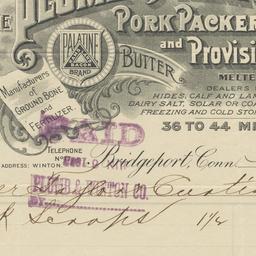 PORK PACKER
and Provisi
PALATINE
BRAND
BUTTER
Manufacturers
of
GROUND BONE
and
FERTILIZER.
MELTE
DEALERS
HIDES, CALF AND LAM
DAIRY SALT, SOLAR OR COA
FREEZING AND COLD STO
PAID
36 TO 44 MI
TELEPHONE
ADDRESS: WINTON,
Bridgeport, Conn.
PLUMB & WINTON CO.
BY
Curtis
k scoops 1/2